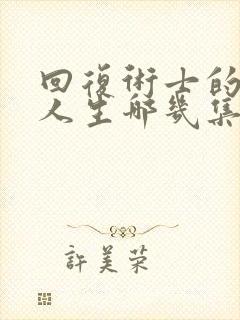 回復術士的
人生哪幾集
許美荣